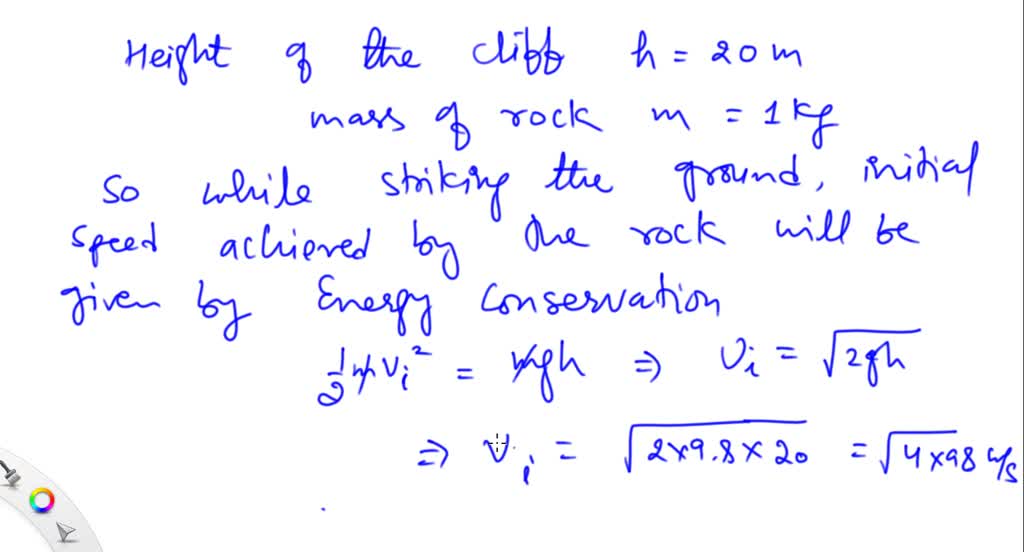 Height of the cliff h = 20 m
mass of rock m = 1 kg
So while striking the ground, initial
speed achieved by the rock will be
given by Energy conservation
1/2 m v_i^2 = mgh ⇒ v_i = √2gh
⇒ v_i = √2×9.8×20 = √4×98 m/s